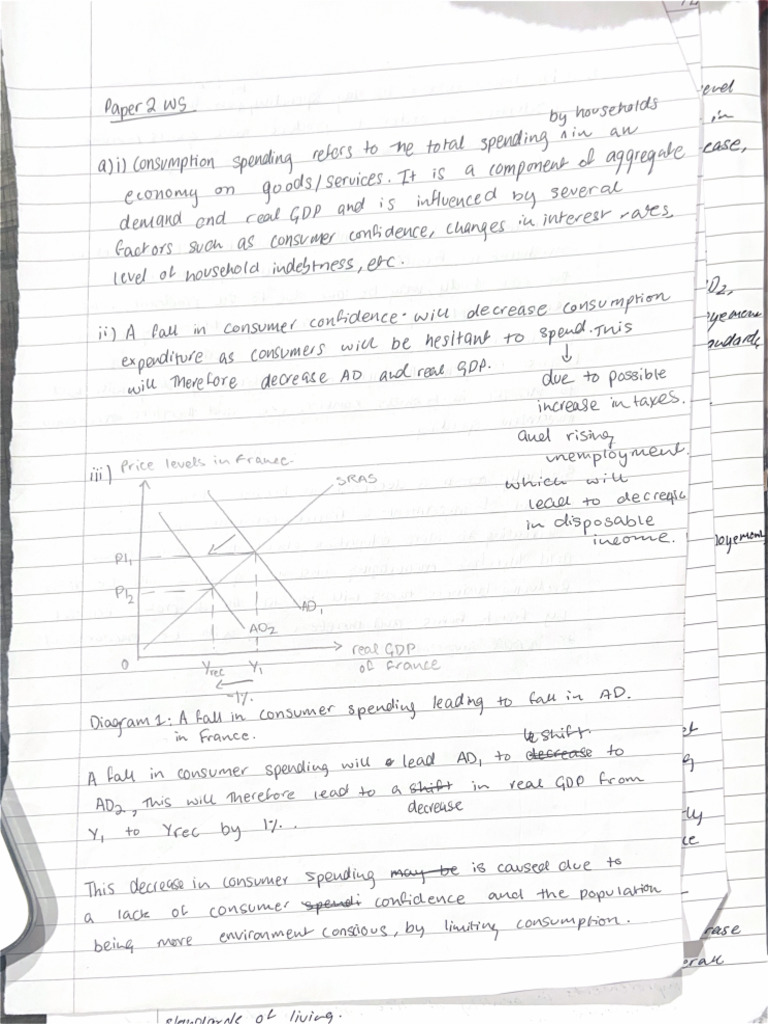 Paper 2 WS
by households
a) i) Consumption spending refers to the total spending ^ in an
economy on goods/services. It is a component of aggregate
demand and real GDP and is influenced by several
factors such as consumer confidence, changes in interest rates,
level of household indebtness, etc.
ii) A fall in consumer confidence will decrease consumption
expenditure as consumers will be hesitant to spend. This
will therefore decrease AD and real GDP.
↓
due to possible
increase in taxes.
and rising
unemployment.
which will
lead to
in disposable
income.
iii) Price levels in France.
SRAS
Pl1
Pl2
AD1
AD2
0
Yrec Y1
real GDP
of France
-1%
Diagram 1: A fall in consumer spending leading to fall in AD.
in France.
shift
A fall in consumer spending will lead AD1 to decrease to
AD2, this will therefore lead to a shift in real GDP from
decrease
Y1 to Yrec by 1%.
This decrease in consumer spending may be is caused due to
a lack of consumer spendi confidence and the population
being more environment conscious, by limiting consumption.
evel
in
ease,
D2,
oyement
andards
loyement
ly
ce
rase
erall
standards of living.